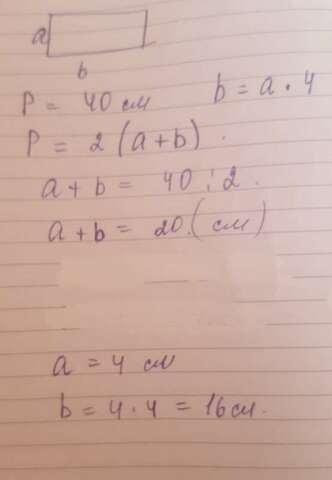 a
b
P = 40 см b = a · 4
P = 2 (a + b).
a + b = 40 : 2.
a + b = 20.(см)
a = 4 см
b = 4 · 4 = 16 см.